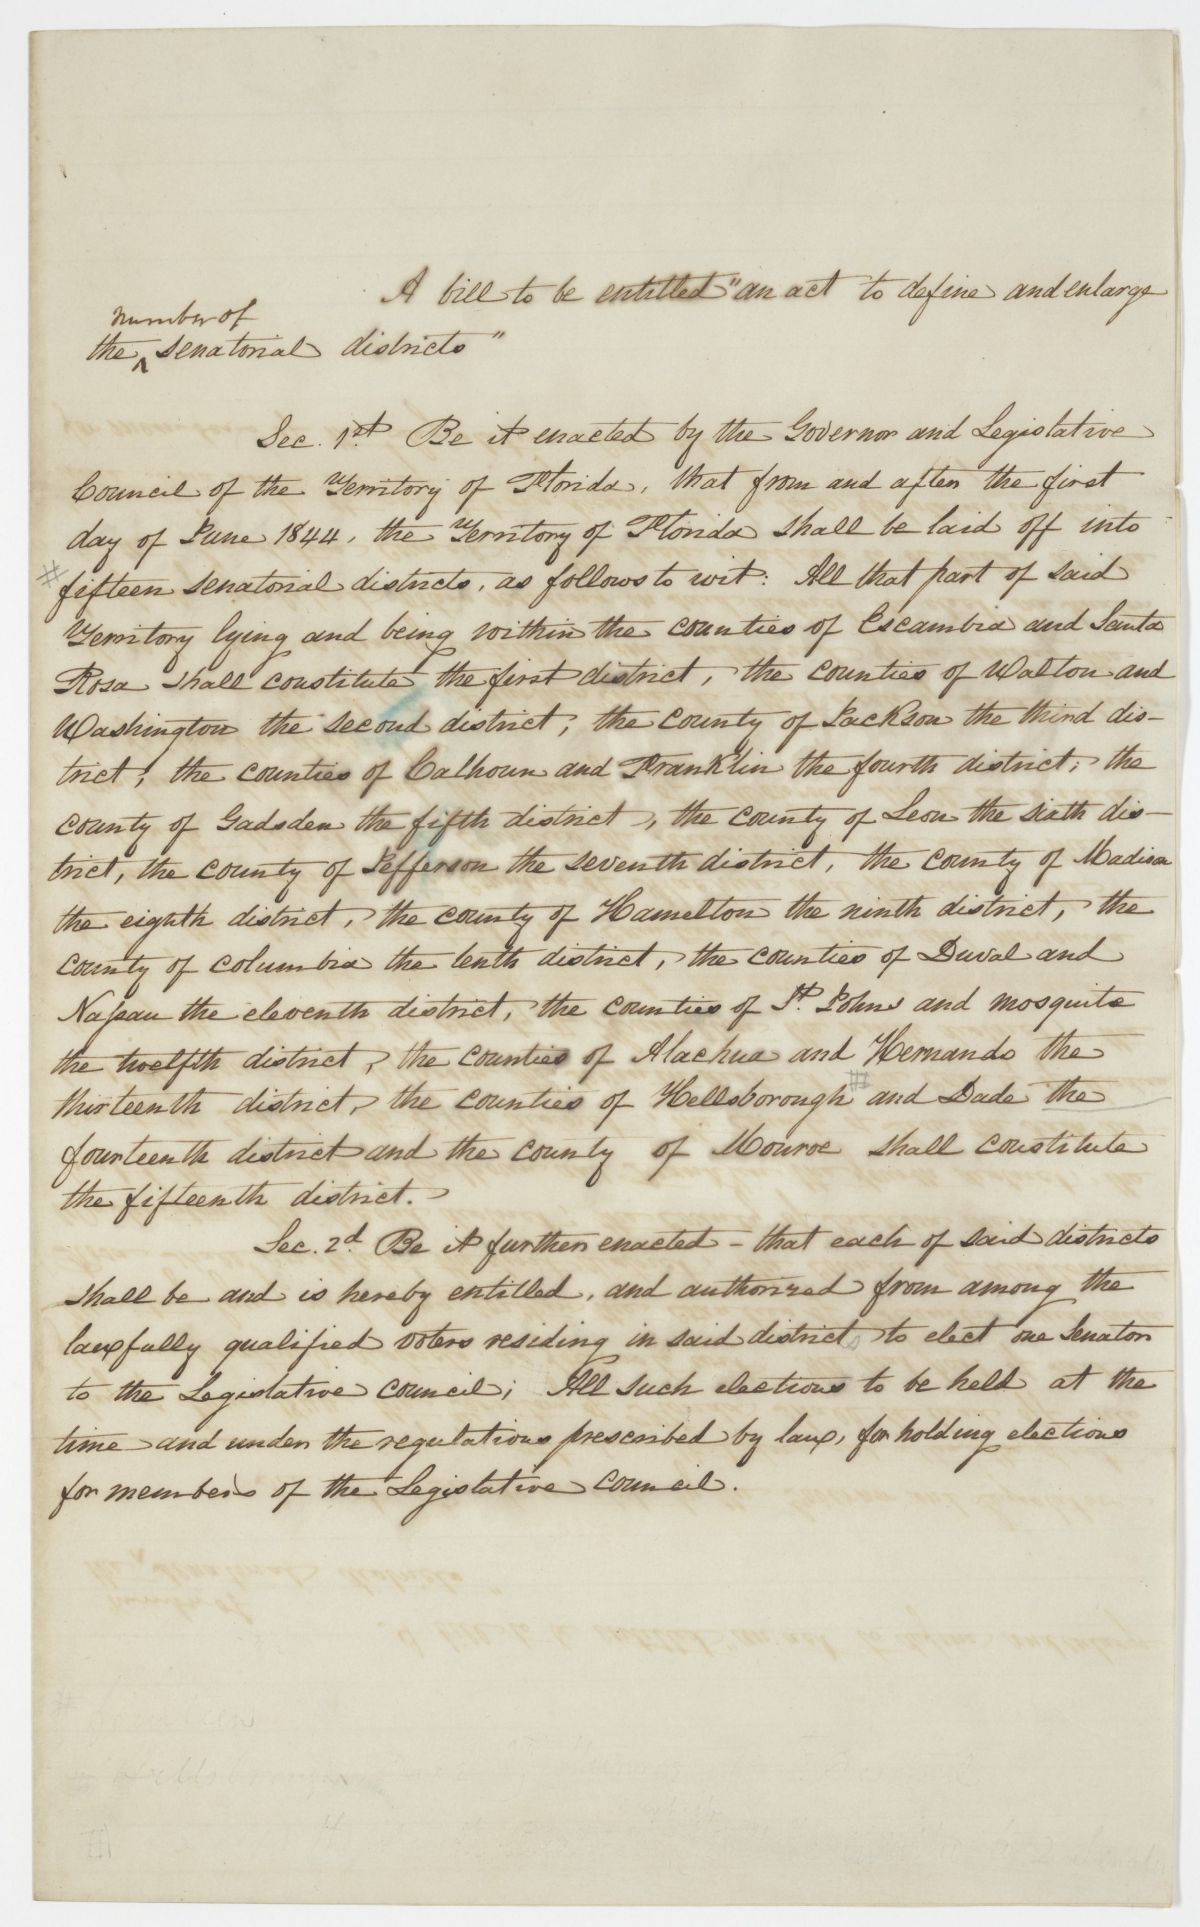 A bill to be entitled "an act to define and enlarge
number of
the ^ senatorial districts"
Sec. 1st. Be it enacted by the Governor and Legislative
Council of the Territory of Florida, that from and after the first
day of June 1844, the Territory of Florida shall be laid off into
# fifteen senatorial districts, as follows to wit: All that part of said
Territory lying and being within the counties of Escambia and Santa
Rosa shall constitute the first district, the counties of Walton and
Washington the second district, the county of Jackson the third dis-
trict, the counties of Calhoun and Franklin the fourth district, the
county of Gadsden the fifth district, the county of Leon the sixth dis-
trict, the county of Jefferson the seventh district, the county of Madison
the eighth district, the county of Hamelton the ninth district, the
county of columbia the tenth district, the counties of Duval and
Nassau the eleventh district, the counties of St. Johns and mosquito
the twelfth district, the counties of Alachua and Hernando the
thirteenth district, the counties of Hellsborough # and Dade the
fourteenth district and the county of Monroe shall constitute
the fifteenth district.
Sec. 2d. Be it further enacted - that each of said districts
shall be and is hereby entitled, and authorized from among the
lawfully qualified voters residing in said districts to elect one Senator
to the Legislative council; All such elections to be held at the
time and under the regulations prescribed by law, for holding elections
for members of the Legislative council.
# fourteen